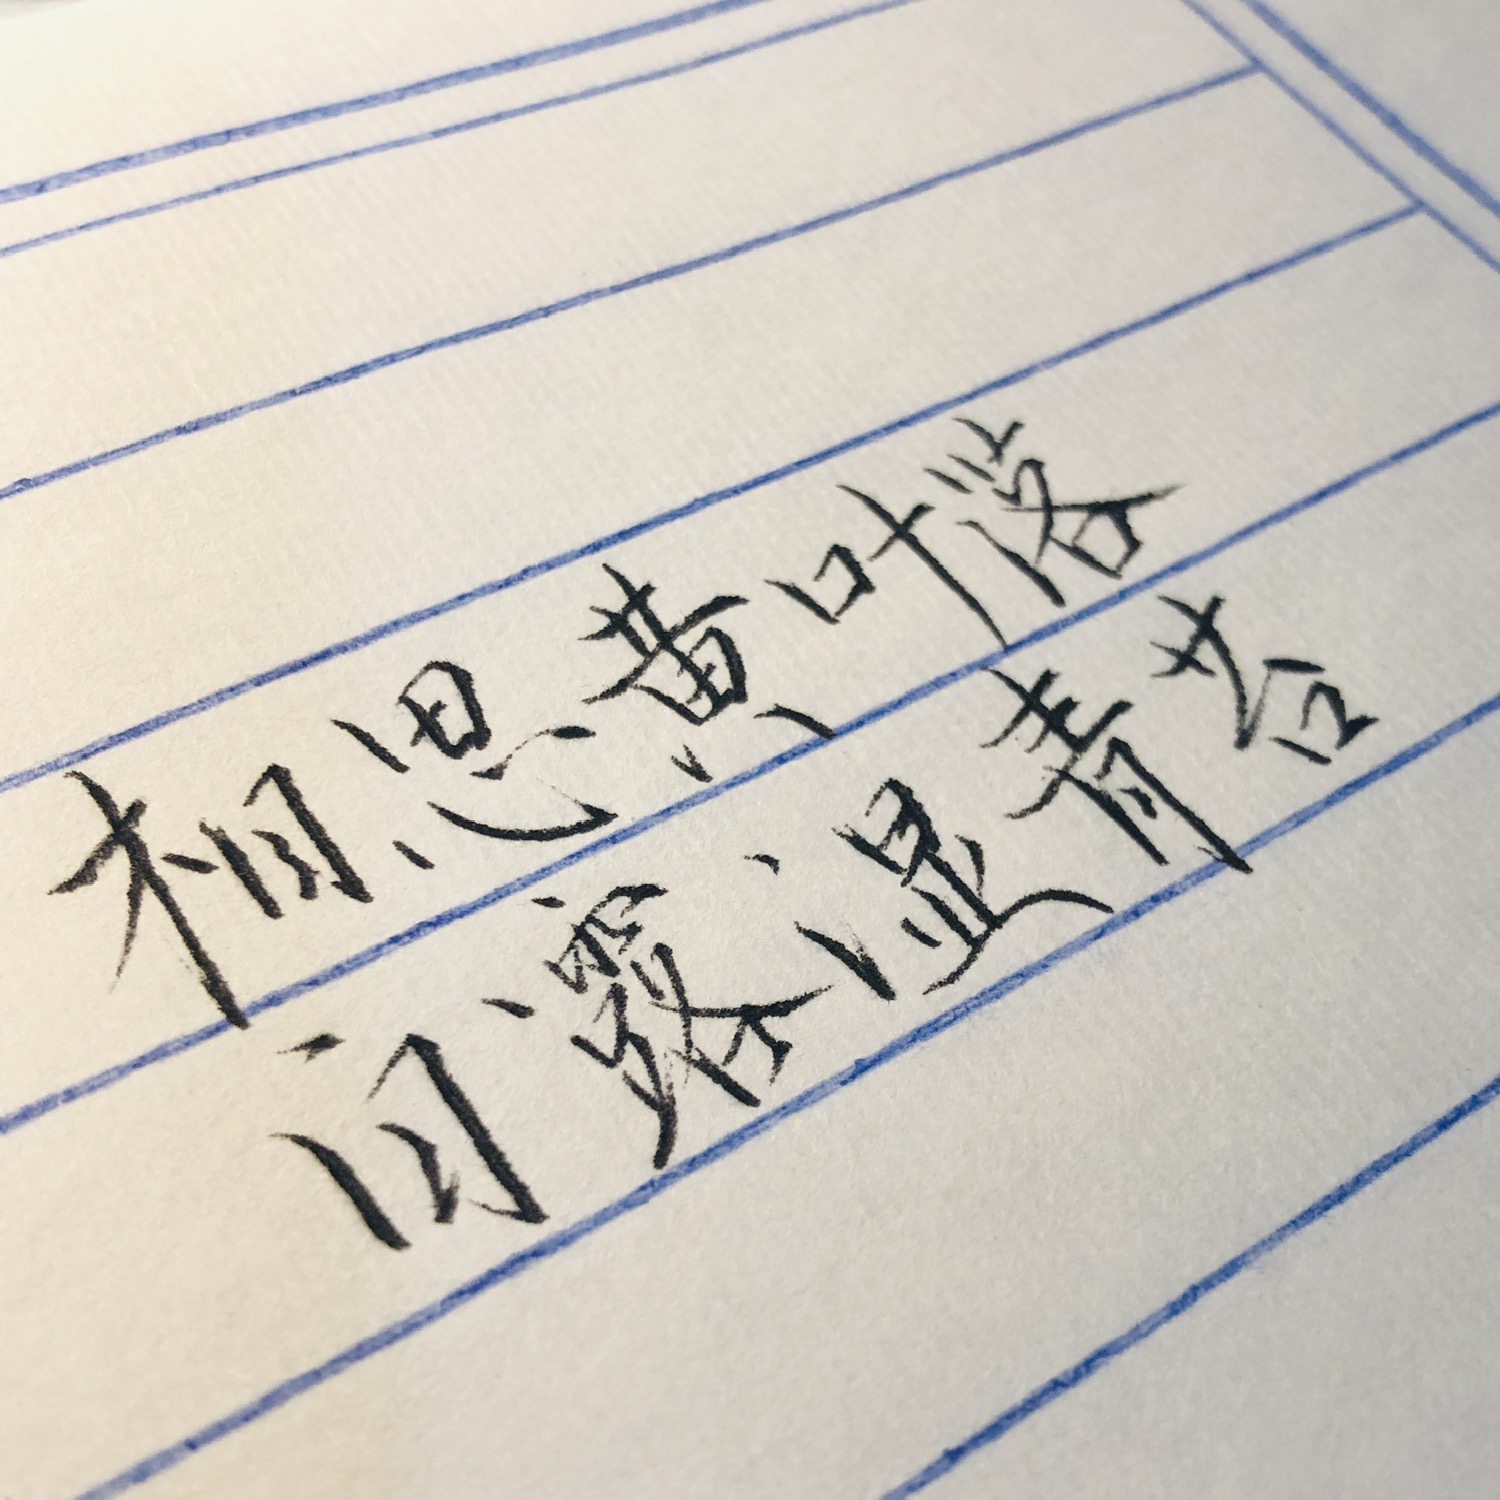 相思黄叶落
白露湿青苔